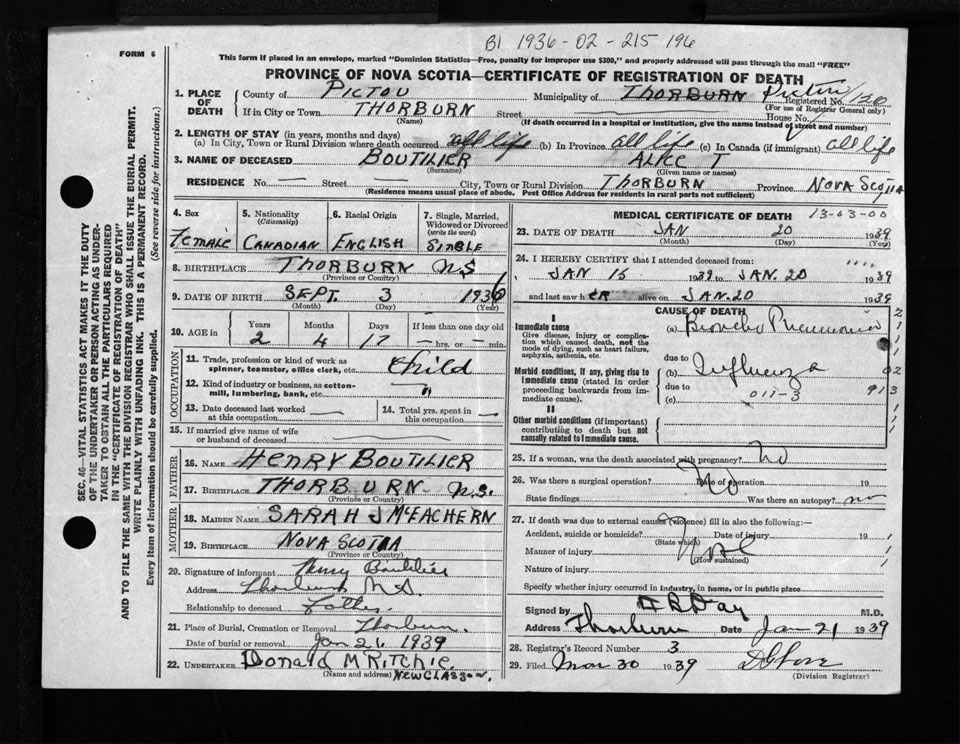 B1 1936-02-215 196
FORM 6
This form if placed in an envelope, marked "Dominion Statistics—Free, penalty for improper use $300," and properly addressed will pass through the mail "FREE"
PROVINCE OF NOVA SCOTIA—CERTIFICATE OF REGISTRATION OF DEATH
1. PLACE OF DEATH
County of PICTOU Municipality of THORBURN Pictou Registered No.
(For use of Registrar General only)
If in City or Town THORBURN Street House No.
(Name) (If death occurred in a hospital or institution, give the name instead of street and number)
2. LENGTH OF STAY (in years, months and days)
(a) In City, Town or Rural Division where death occurred all life (b) In Province all life (c) In Canada (if immigrant) all life
3. NAME OF DECEASED BOUTILIER ALICE T
(Surname) (Given name or names)
RESIDENCE No. — Street City, Town or Rural Division THORBURN Province NOVA SCOTIA
(Residence means usual place of abode. Post Office Address for residents in rural parts not sufficient)
SEC. 46—VITAL STATISTICS ACT MAKES IT THE DUTY
OF THE UNDERTAKER OR PERSON ACTING AS UNDER-
TAKER TO OBTAIN ALL THE PARTICULARS REQUIRED
IN THE "CERTIFICATE OF REGISTRATION OF DEATH"
AND TO FILE THE SAME WITH THE DIVISION REGISTRAR WHO SHALL ISSUE THE BURIAL PERMIT.
WRITE PLAINLY WITH UNFADING INK. THIS IS A PERMANENT RECORD.
Every item of Information should be carefully supplied. (See reverse side for instructions.)
4. Sex 5. Nationality 6. Racial Origin 7. Single, Married,
(Citizenship) Widowed or Divorced
(write the word)
FEMALE CANADIAN ENGLISH SINGLE
8. BIRTHPLACE THORBURN N.S
(Province or Country)
9. DATE OF BIRTH SEPT. 3 1936
(Month) (Day) (Year)
10. AGE in Years Months Days If less than one day old
2 4 17 — hrs. or — min.
OCCUPATION
11. Trade, profession or kind of work as
spinner, teamster, office clerk, etc. Child
12. Kind of industry or business, as cotton-
mill, lumbering, bank, etc. "
13. Date deceased last worked
at this occupation —
14. Total yrs. spent in
this occupation —
15. If married give name of wife
or husband of deceased
FATHER
16. NAME HENRY BOUTILIER
17. BIRTHPLACE THORBURN N.S.
(Province or Country)
MOTHER
18. MAIDEN NAME SARAH J McEACHERN
19. BIRTHPLACE NOVA SCOTIA
(Province or Country)
20. Signature of informant Henry Boutilier
Address Thorburn N.S.
Relationship to deceased Father
21. Place of Burial, Cremation or Removal Thorburn.
Date of burial or removal Jan 21 1939
22. UNDERTAKER DONALD McRITCHIE.
(Name and address) NEW GLASGOW.
MEDICAL CERTIFICATE OF DEATH 13-03-00
23. DATE OF DEATH JAN 20 1939
(Month) (Day) (Year)
24. I HEREBY CERTIFY that I attended deceased from:
JAN 15 1939 to JAN. 20 1939
and last saw h ER alive on JAN. 20 1939
CAUSE OF DEATH
I
Immediate cause (a) Broncho Pneumonia
Give disease, injury or complica-
tion which caused death, not the
mode of dying, such as heart failure,
asphyxia, asthenia, etc.
due to
Morbid conditions, if any, giving rise to
immediate cause (stated in order
proceeding backwards from im-
mediate cause).
(b) Influenza
due to
(c) 011-3
II
Other morbid conditions (if important)
contributing to death but not
causally related to immediate cause.
25. If a woman, was the death associated with pregnancy? No
26. Was there a surgical operation? No Date of operation 19
State findings Was there an autopsy? no
27. If death was due to external causes (violence) fill in also the following:
Accident, suicide or homicide? Date of injury 19
(State which)
Manner of injury
(How sustained)
Nature of injury
Specify whether injury occurred in industry, in home, or in public place
Signed by M.D.
Address Thorburn Date Jan 21 1939
28. Registrar's Record Number 3
29. Filed Mar 30 1939
(Division Registrar)